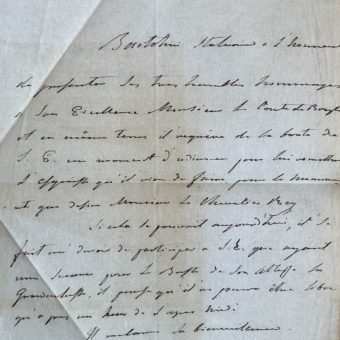 Bartolini Statuaire a l'honneur
de presenter ses tres humbles hommages
a Son Excellence Monsieur le Comte de
et en même tems d'implorer de la bonté de
S. E. un moment d'audience pour lui
l'esquisse qu'il vien de faire pour le
et que desire Monsieur le Chevalier
Si cela se pouvait aujourd'hui, il se
fait un devoir de S. E. que ayant
une Seance pour le Buste de Son Altesse la
Grandechesse, il pense qu'il ne pourra être libre
qu'a pres un heur de l'apres midi
Il reclame sa bienveillance